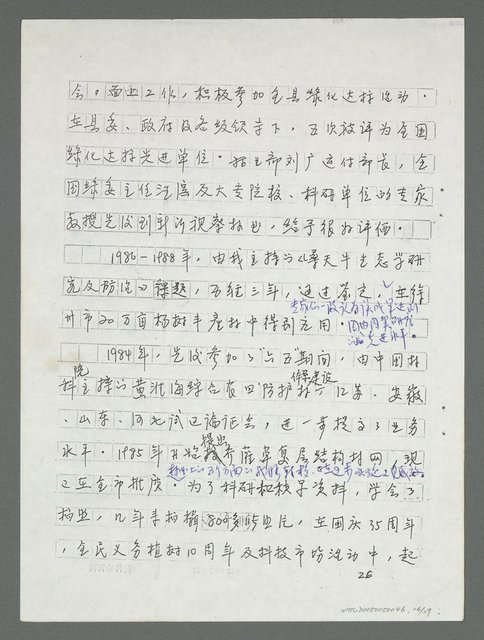 会，面上工作，积极参加全县绿化达标活动。
在县委、政府及各级领导下，五次被评为全国
绿化达标先进单位。林业部刘广运付部长，全
国绿委主任 及大专院校、科研单位的专家
教授先后到 视察 ，给予很好评价。
1986－1988年，由我主持的《桑天牛生态学研
究及防治》课题，历经三年，通过鉴定，在徐
专家们一致认为该成果达到
州市20万亩杨树丰产林中得到应用。
国内同类研究
的先进水平。
1984年，先后参加了"六五"期间，由中国林
院
科主持的黄淮海综合农田防护林 江苏、安徽
体系建设
、山东、河 试 论证会，进一步提高了业务
水平。1985年开始 乔灌草复层结构林网，现
提出
已在全市推广。为了科研积积累资料，学会了
拍照，几年来拍摄800多 照片，在国庆35周年
，全民义务植树10周年及科技市场活动中，起
26
NMTL20050050046 26/29